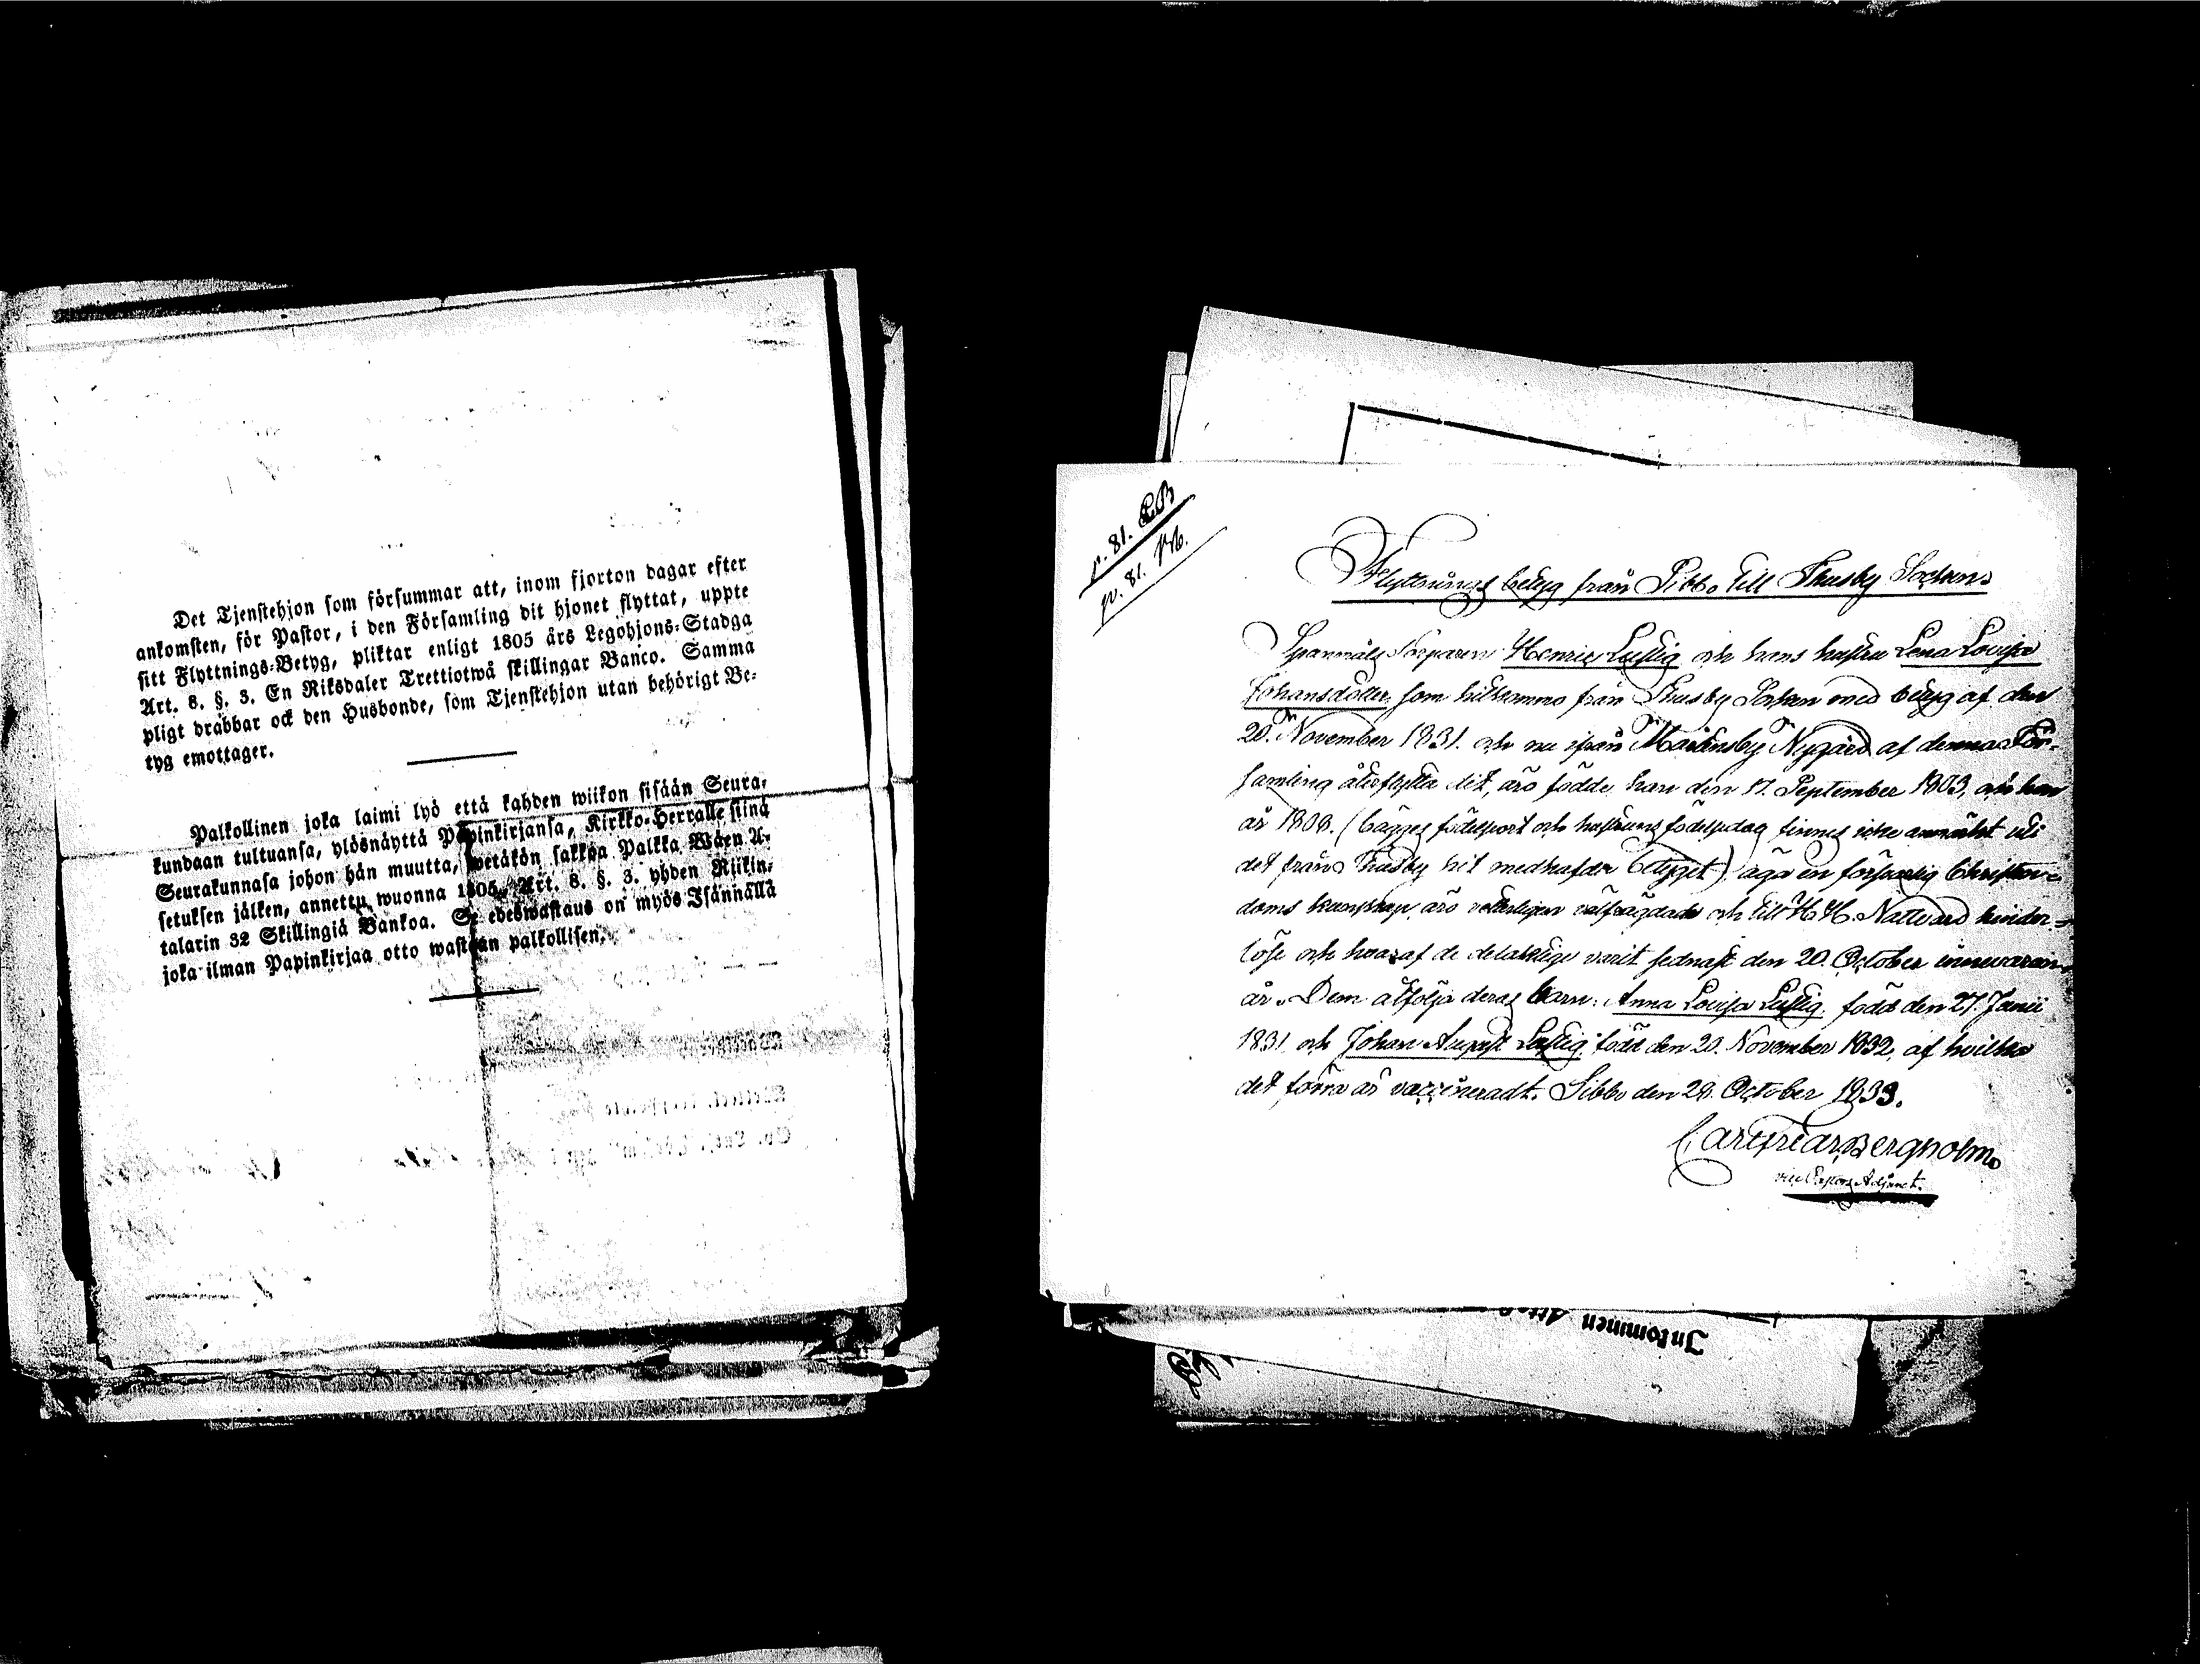 Det Tjenstehjon som försummar att, inom fjorton dagar efter
ankomsten, för Pastor, i den Församling dit hjonet flyttat, uppte
sitt Flyttnings-Betyg, pliktar enligt 1805 års Legohjons-Stadga
Art. 8. §. 3. En Riksdaler Trettiotwå skillingar Banco. Samma
pligt drabbar ock den Husbonde, som Tjenstehjon utan behörigt Be-
tyg emottager.
Palkollinen joka laimi lyö että kahden wiikon sisään Seura-
kundaan tultuansa, ylösnäyttä Papinkirjansa, Kirkko-Herralle siinä
Seurakunnasa johon hän muutta, wetäkön sakkoa Palkka Wäen A-
setuksen jälken, annettu wuonna 1805 Art. 8. §. 3. yhden Riikin-
talarin 32 Skillingiä Bankoa. Se edeswastaus on myös Isännällä
joka ilman Papinkirjaa otto wastaan palkollisen.
p. 81.
p. 81.
Flyttnings betyg från Sibbo till Thusby Sochen
Henric Lustig och hans hustru Lena Lovisa
Johansdotter som hitkommo från Thusby Sochen med betyg af den
20. November 1831. och nu ifrån Mårtensby Nygård af denna För-
samling återflytta dit, äro födde, han den 17. September 1803, och hon
år 1808. (bägges födelseort och hustruns födelsedag finnes icke anmält uti
det från Thusby hit medhafda betyget) äga en försvarlig Christen-
doms kunskap, äro välfrägdade och till H. H. Nattvard hinder-
löse och hvaraf de delaktige varit sednast den 20. October innevarande
år. Dem åtfölja deras barn: Anna Lovisa Lustig, född den 27. Junii
1831 och Johan August Lustig född den 20. November 1832, af hvilka
det förra är vaccineradt. Sibbo den 29. October 1833.
Bergholm
vice Pastors Adjunct.
Inkommen